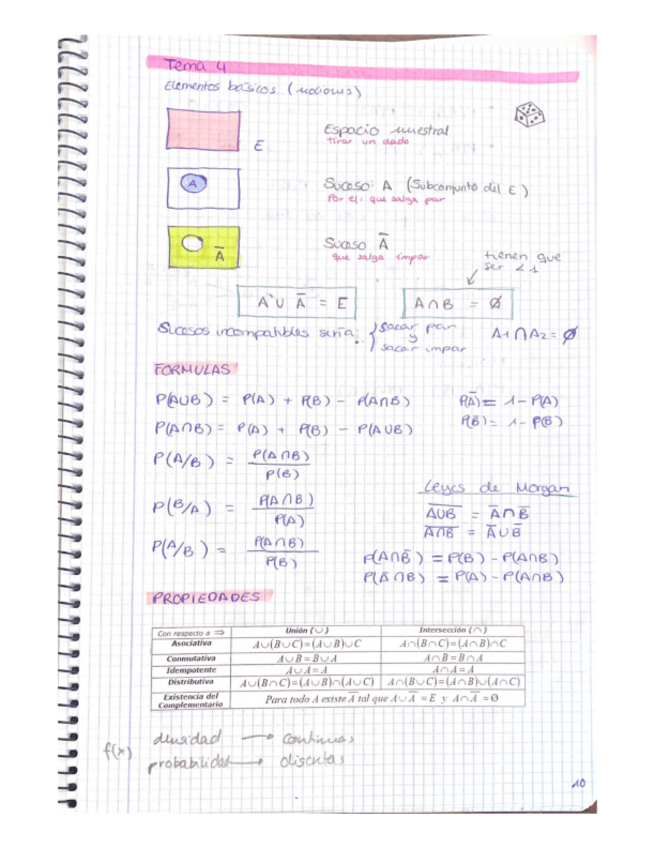 Tema 4
Elementos básicos (nociones)
E
Espacio muestral
tirar un dado
A
Suceso: A (Subconjunto del E)
Por ej: que salga par
A̅
Suceso A̅
que salga impar
tienen que
ser < 1
A ∪ A̅ = E
A ∩ B = Ø
Sucesos incompatibles sería: { sacar par y sacar impar
A₁ ∩ A₂ = Ø
FORMULAS
P(A∪B) = P(A) + P(B) - P(A∩B)
P(A̅) = 1 - P(A)
P(A∩B) = P(A) + P(B) - P(A∪B)
P(B̅) = 1 - P(B)
P(A/B) = P(A∩B) / P(B)
P(B/A) = P(A∩B) / P(A)
P(A/B) = P(A∩B) / P(B)
Leyes de Morgan
A∪B̅ = A̅∩B̅
A∩B̅ = A̅∪B̅
P(A∩B̅) = P(B) - P(A∩B)
P(A̅∩B) = P(A) - P(A∩B)
PROPIEDADES
Con respecto a ⇒ Unión (∪) Intersección (∩)
Asociativa A∪(B∪C)=(A∪B)∪C A∩(B∩C)=(A∩B)∩C
Conmutativa A∪B=B∪A A∩B=B∩A
Idempotente A∪A=A A∩A=A
Distributiva A∪(B∩C)=(A∪B)∩(A∪C) A∩(B∪C)=(A∩B)∪(A∩C)
Existencia del
Complementario Para todo A existe A̅ tal que A∪A̅=E y A∩A̅=Ø
f(x)
densidad → continuas
probabilidad → discretas
10